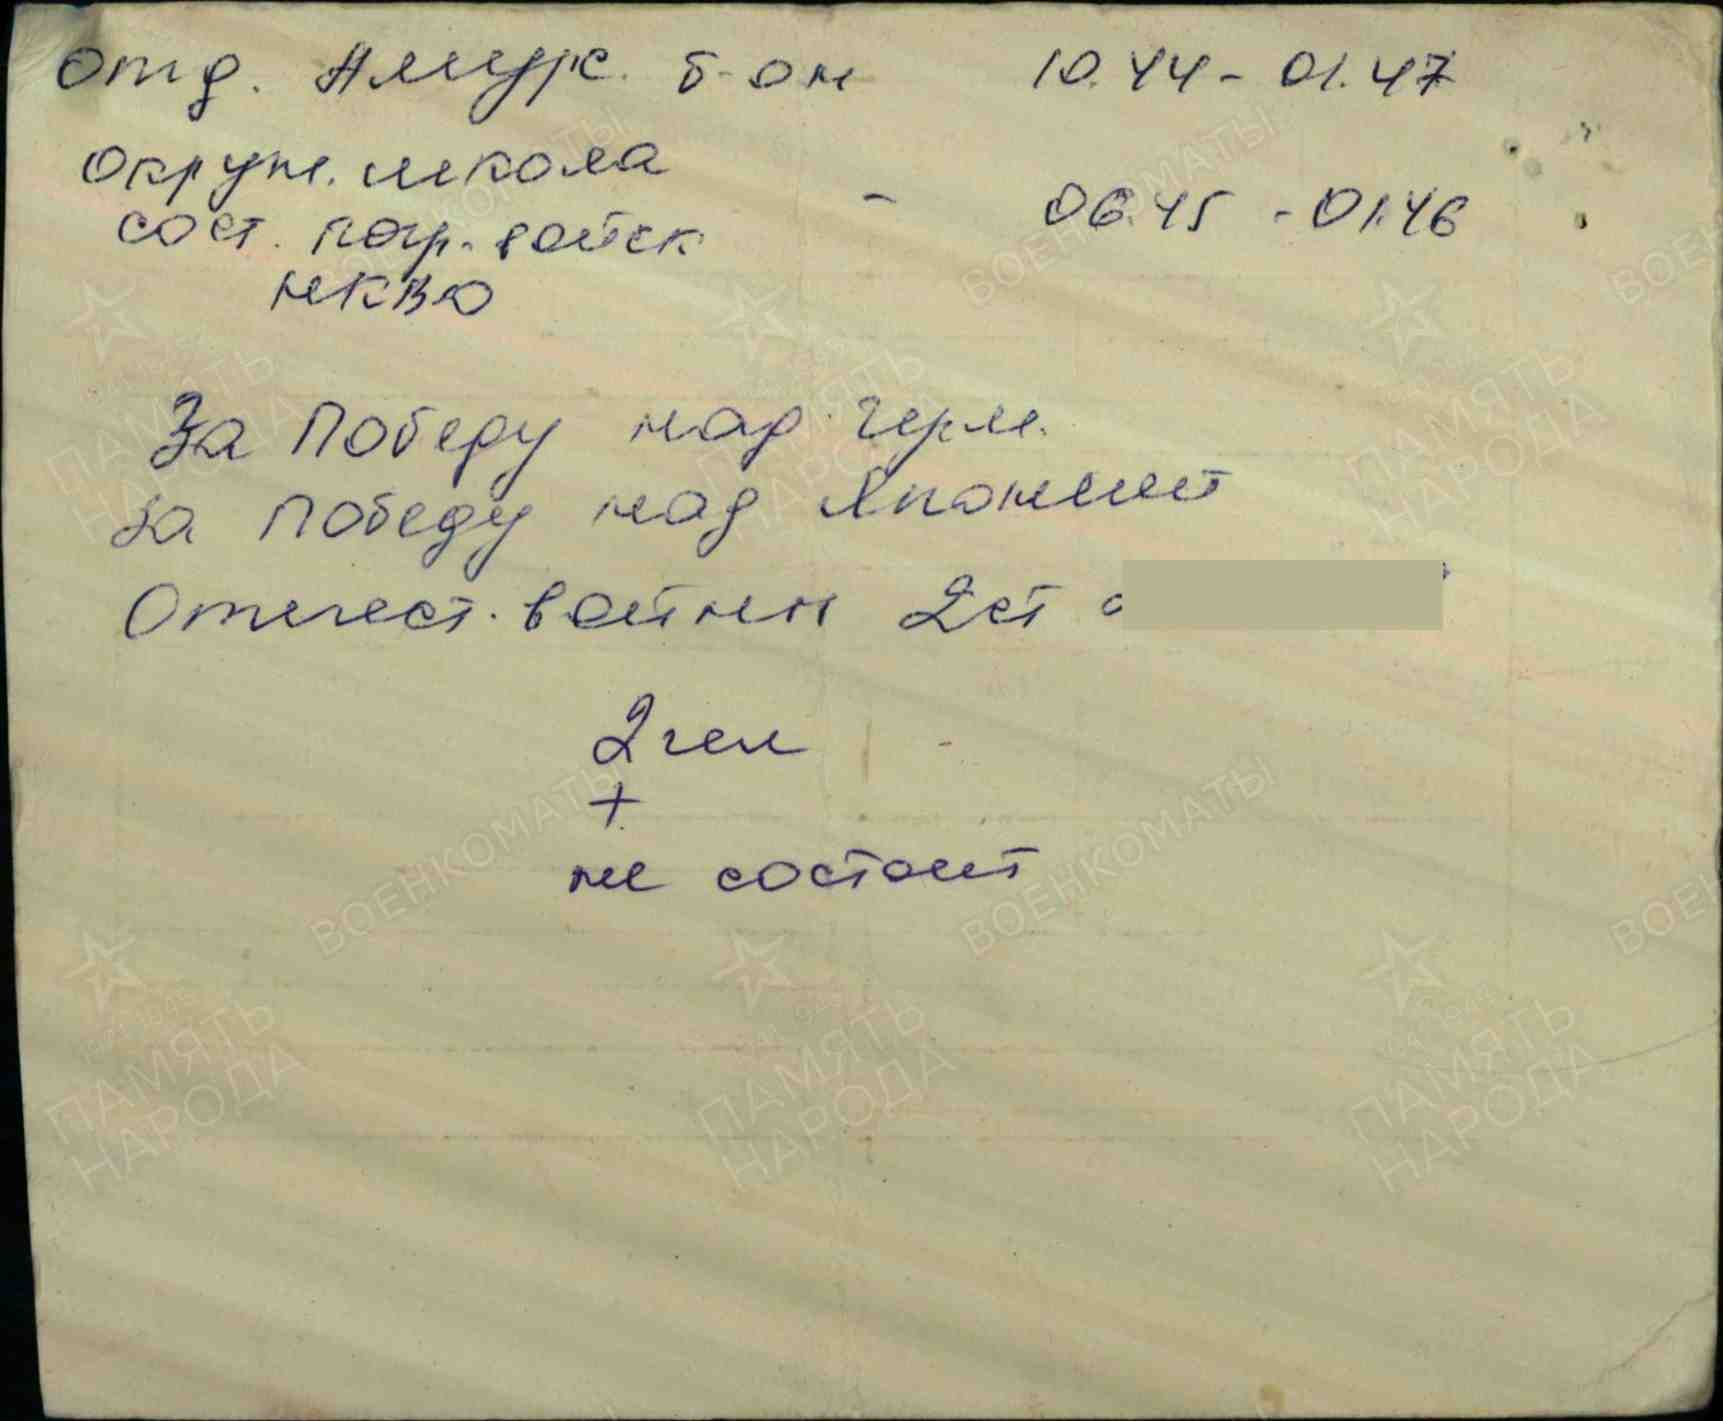 Отд. Амурс. б-он 10.44 - 01.47
Окруж. школа
сост. погр. войск - 06.45 - 01.46
НКВД
За Победу над Герм.
За Победу над Японией
Отечест. войны 2 ст
2 чел
+
не состоит
ВОЕНКОМАТЫ
ПАМЯТЬ
НАРОДА